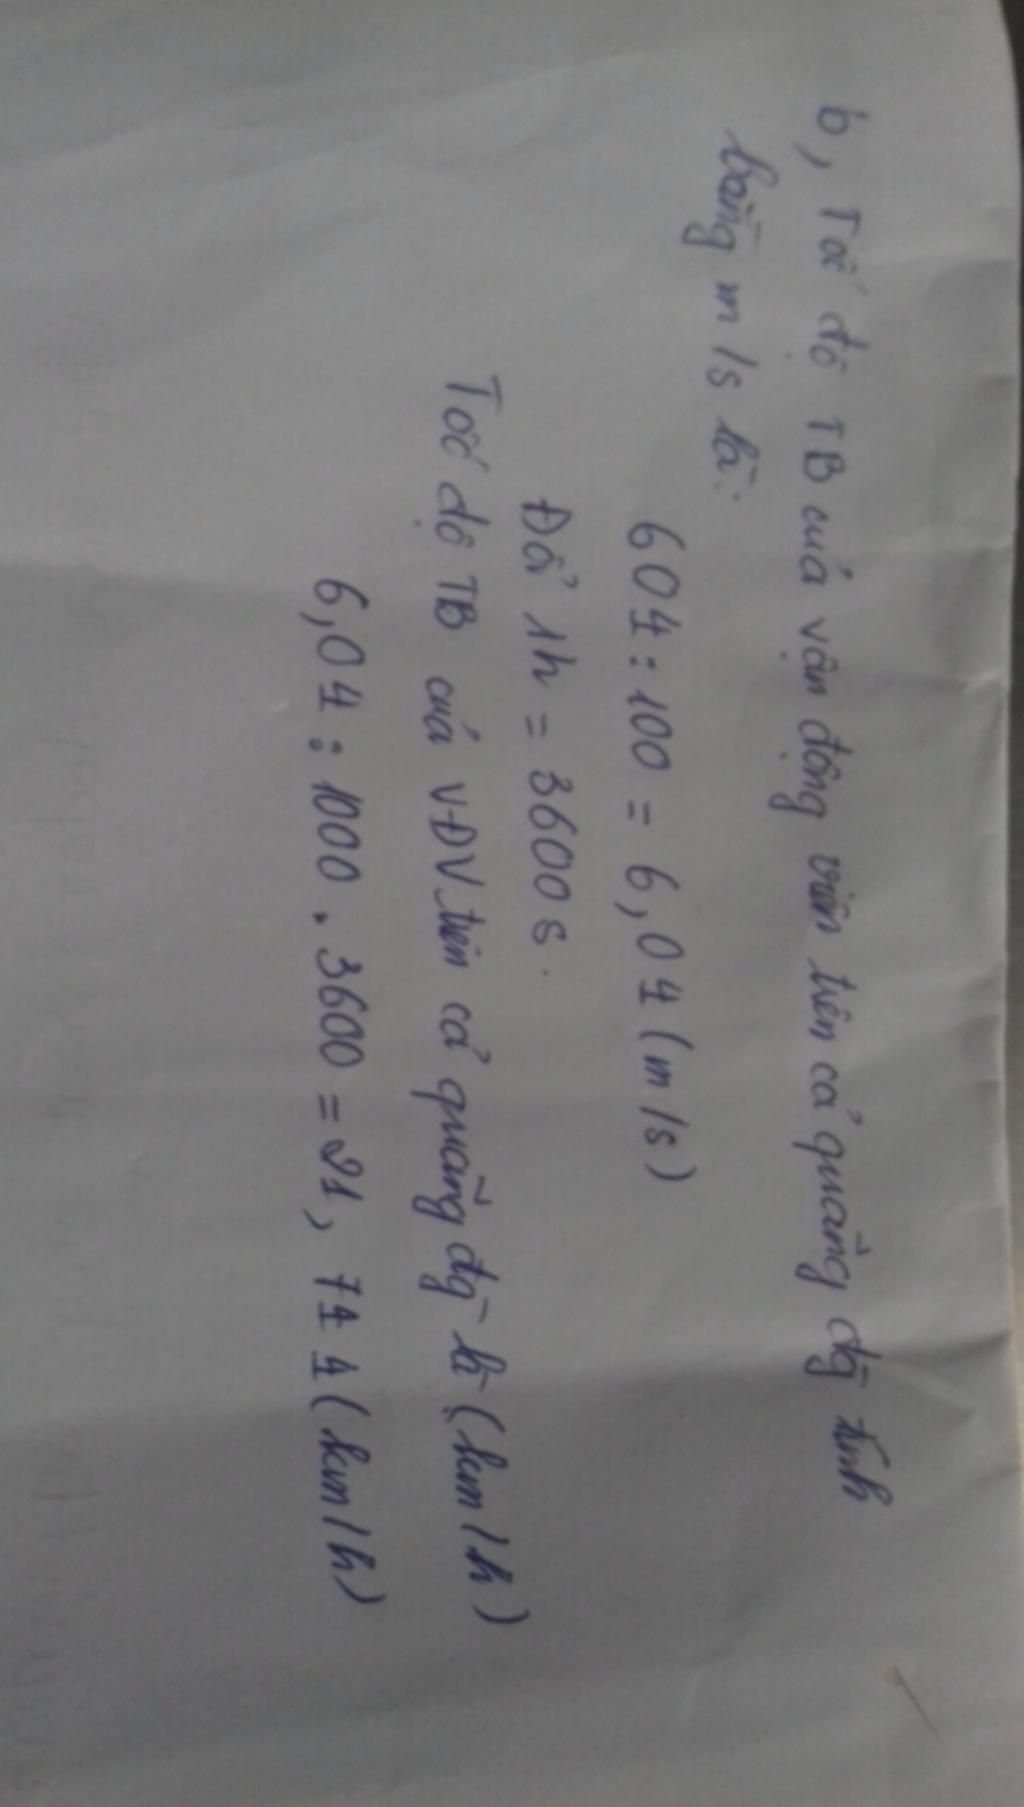 b, Tốc độ TB của vận động viên trên cả quãng đg tính
bằng m/s là:
604 : 100 = 6,04 (m/s)
Đổi 1h = 3600s.
Tốc độ TB của VĐV trên cả quãng đg là (km/h)
6,04 : 1000 . 3600 = 21,744 (km/h)